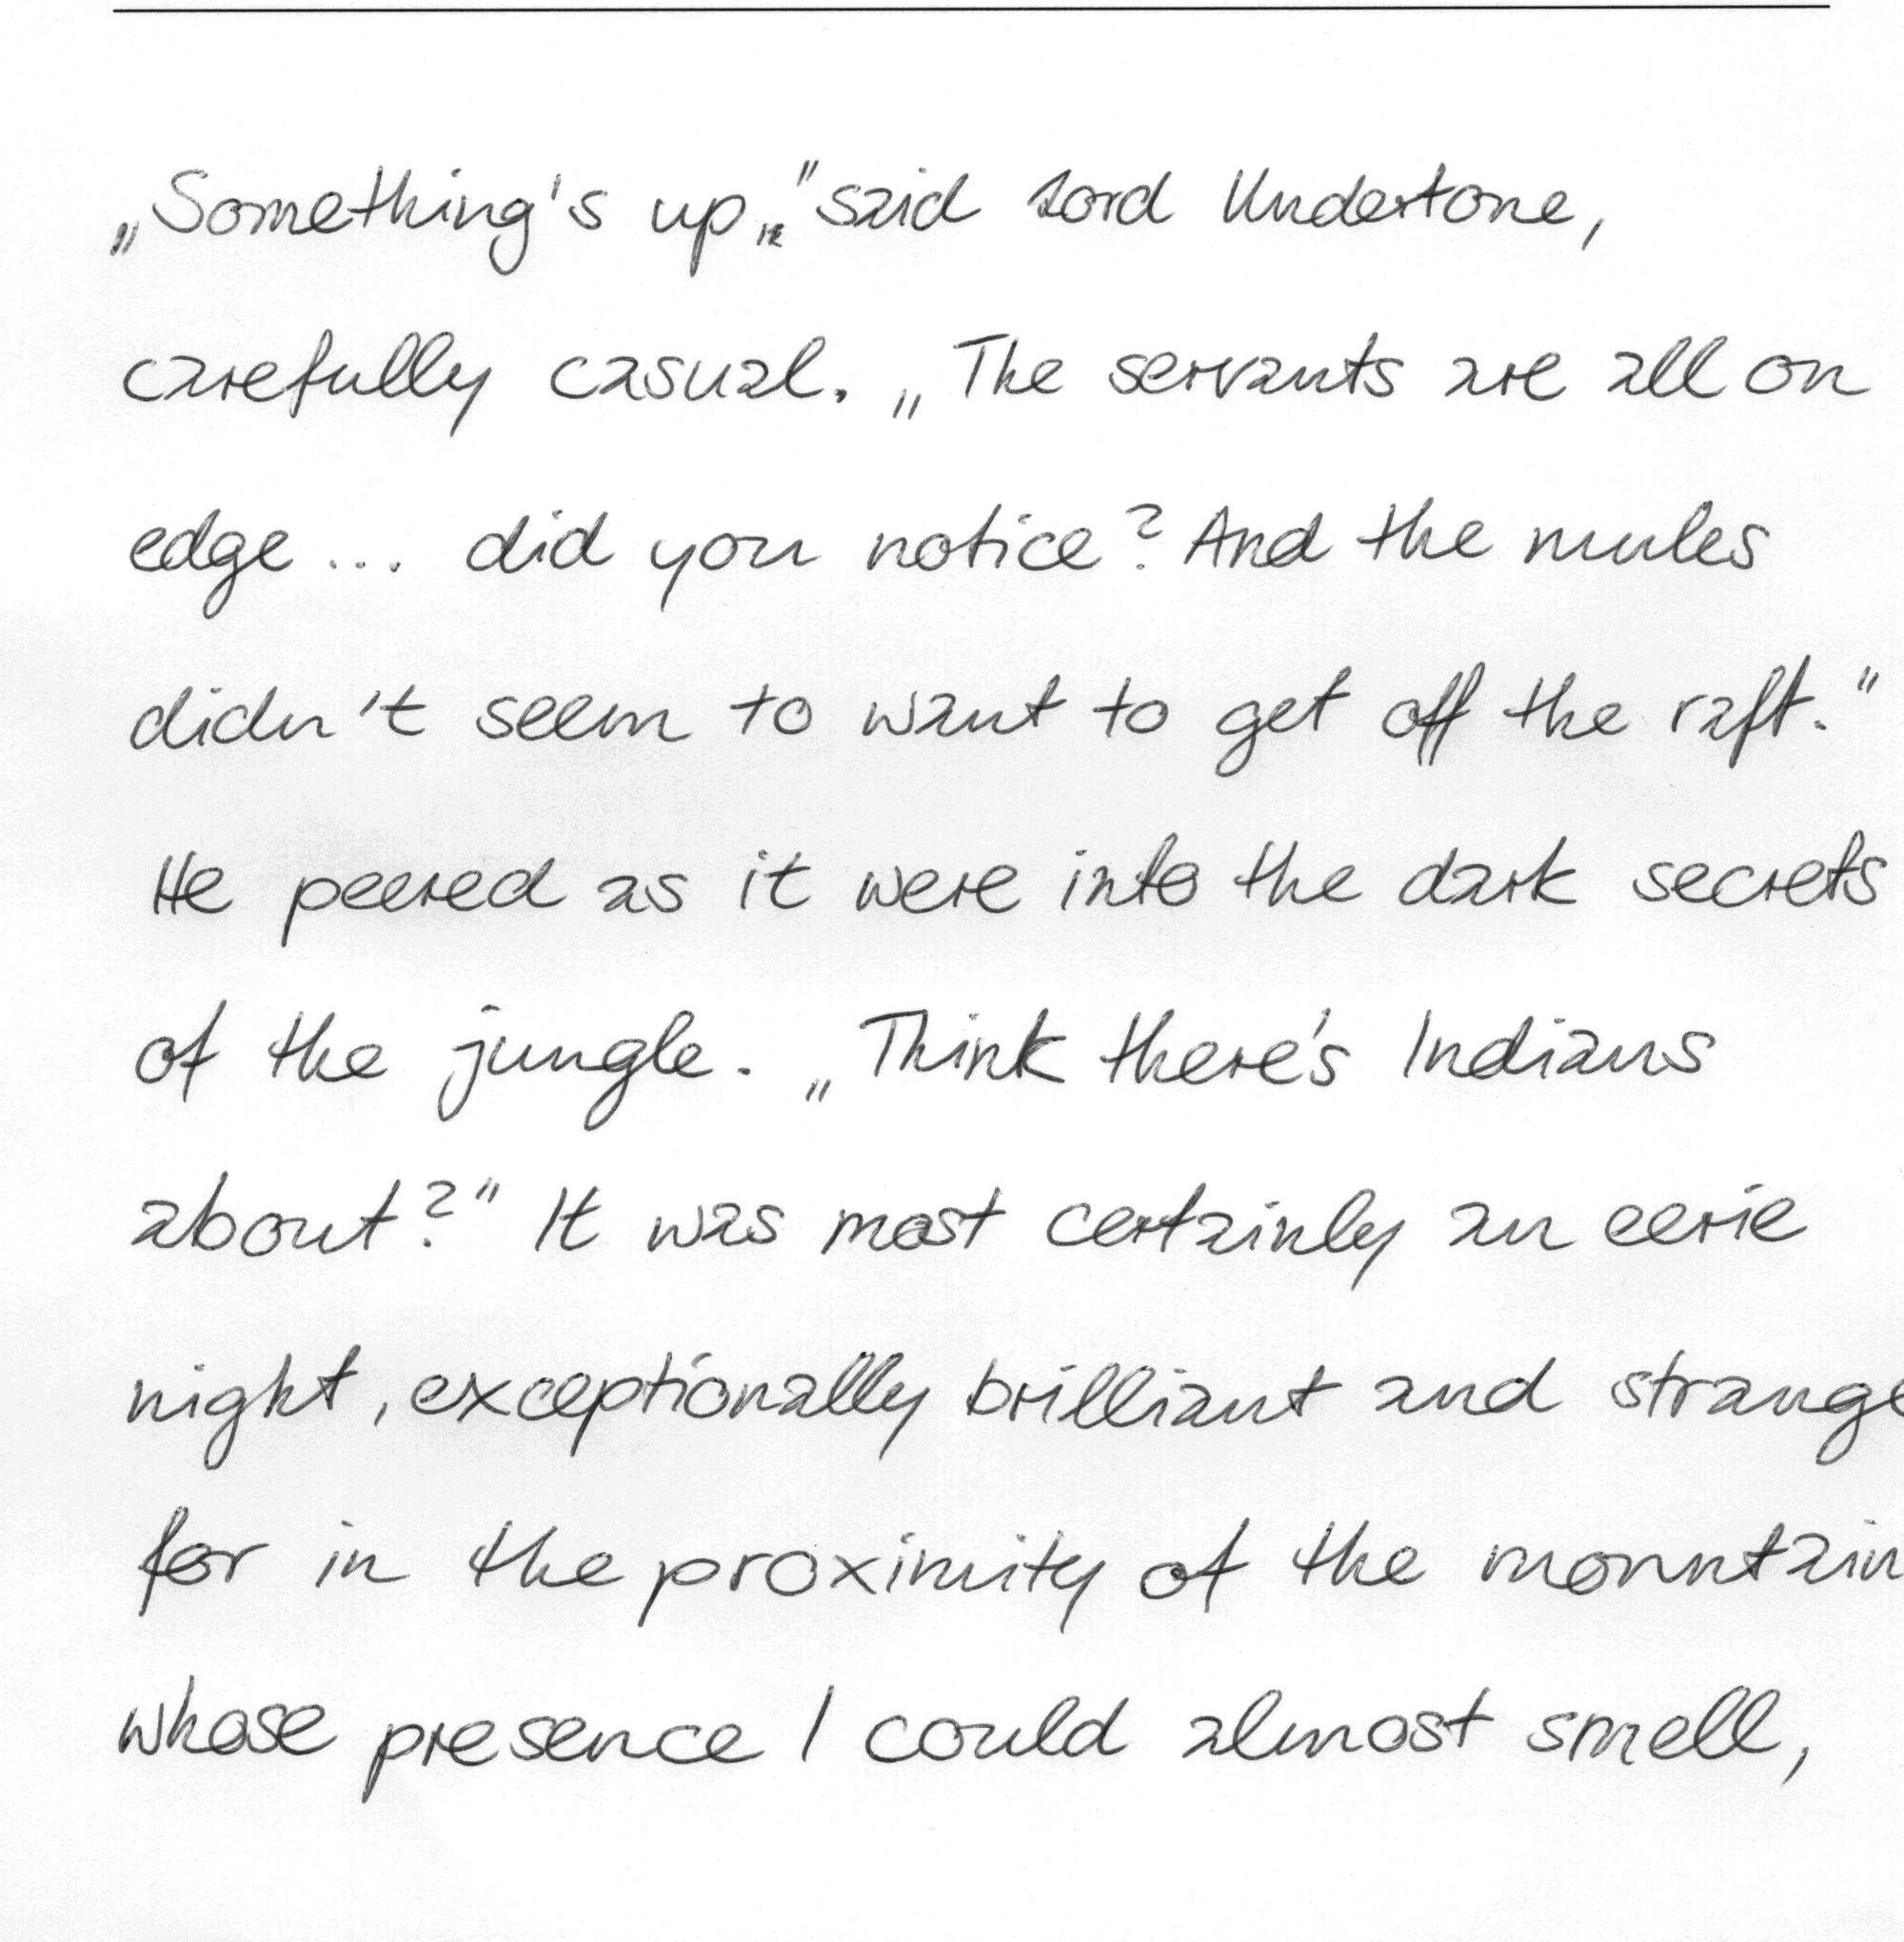 „Something's up," said Lord Undertone,
carefully casual. „The servants are all on
edge ... did you notice? And the mules
didn't seem to want to get off the raft."
He peered as it were into the dark secrets
of the jungle. „Think there's Indians
about?" It was most certainly an eerie
night, exceptionally brilliant and strange
for in the proximity of the mountain
whose presence I could almost smell,